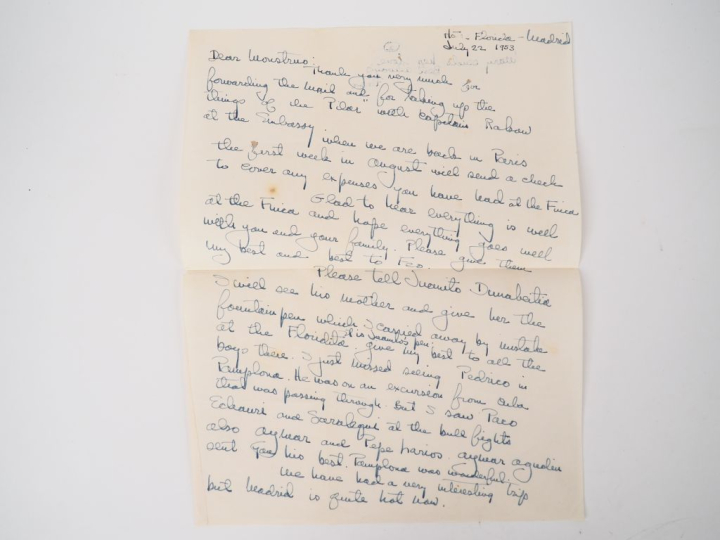 Ht. - Florida - Madrid
July 22 1953
Dear Monstruo:
Thank you very much for
forwarding the mail and for taking up the
things of the "Pilar" with Capitain Rabow
at the Embassy. When we are back in Paris
the first week in August will send a check
to cover any expenses you have had at the Finca
Glad to hear everything is well
at the Finca and hope everything goes well
with you and your family. Please give them
my best and best to Feo.
Please tell Juanito Dunabeitia
I will see his mother and give her the
fountain pen which I carried away by mistake
It is Juanito's pen;
at the Floridita give my best to all the
boys there. I just missed seeing Pedrico in
Pamplona. He was on an excursion from Cuba
that was passing through. But I saw Paco
Echauri and Saralegui at the bull fights
also aymar and Pepe Larios. aymar
sent you his best. Pamplona was wonderful.
We have had a very interesting trip
but Madrid is quite hot now.